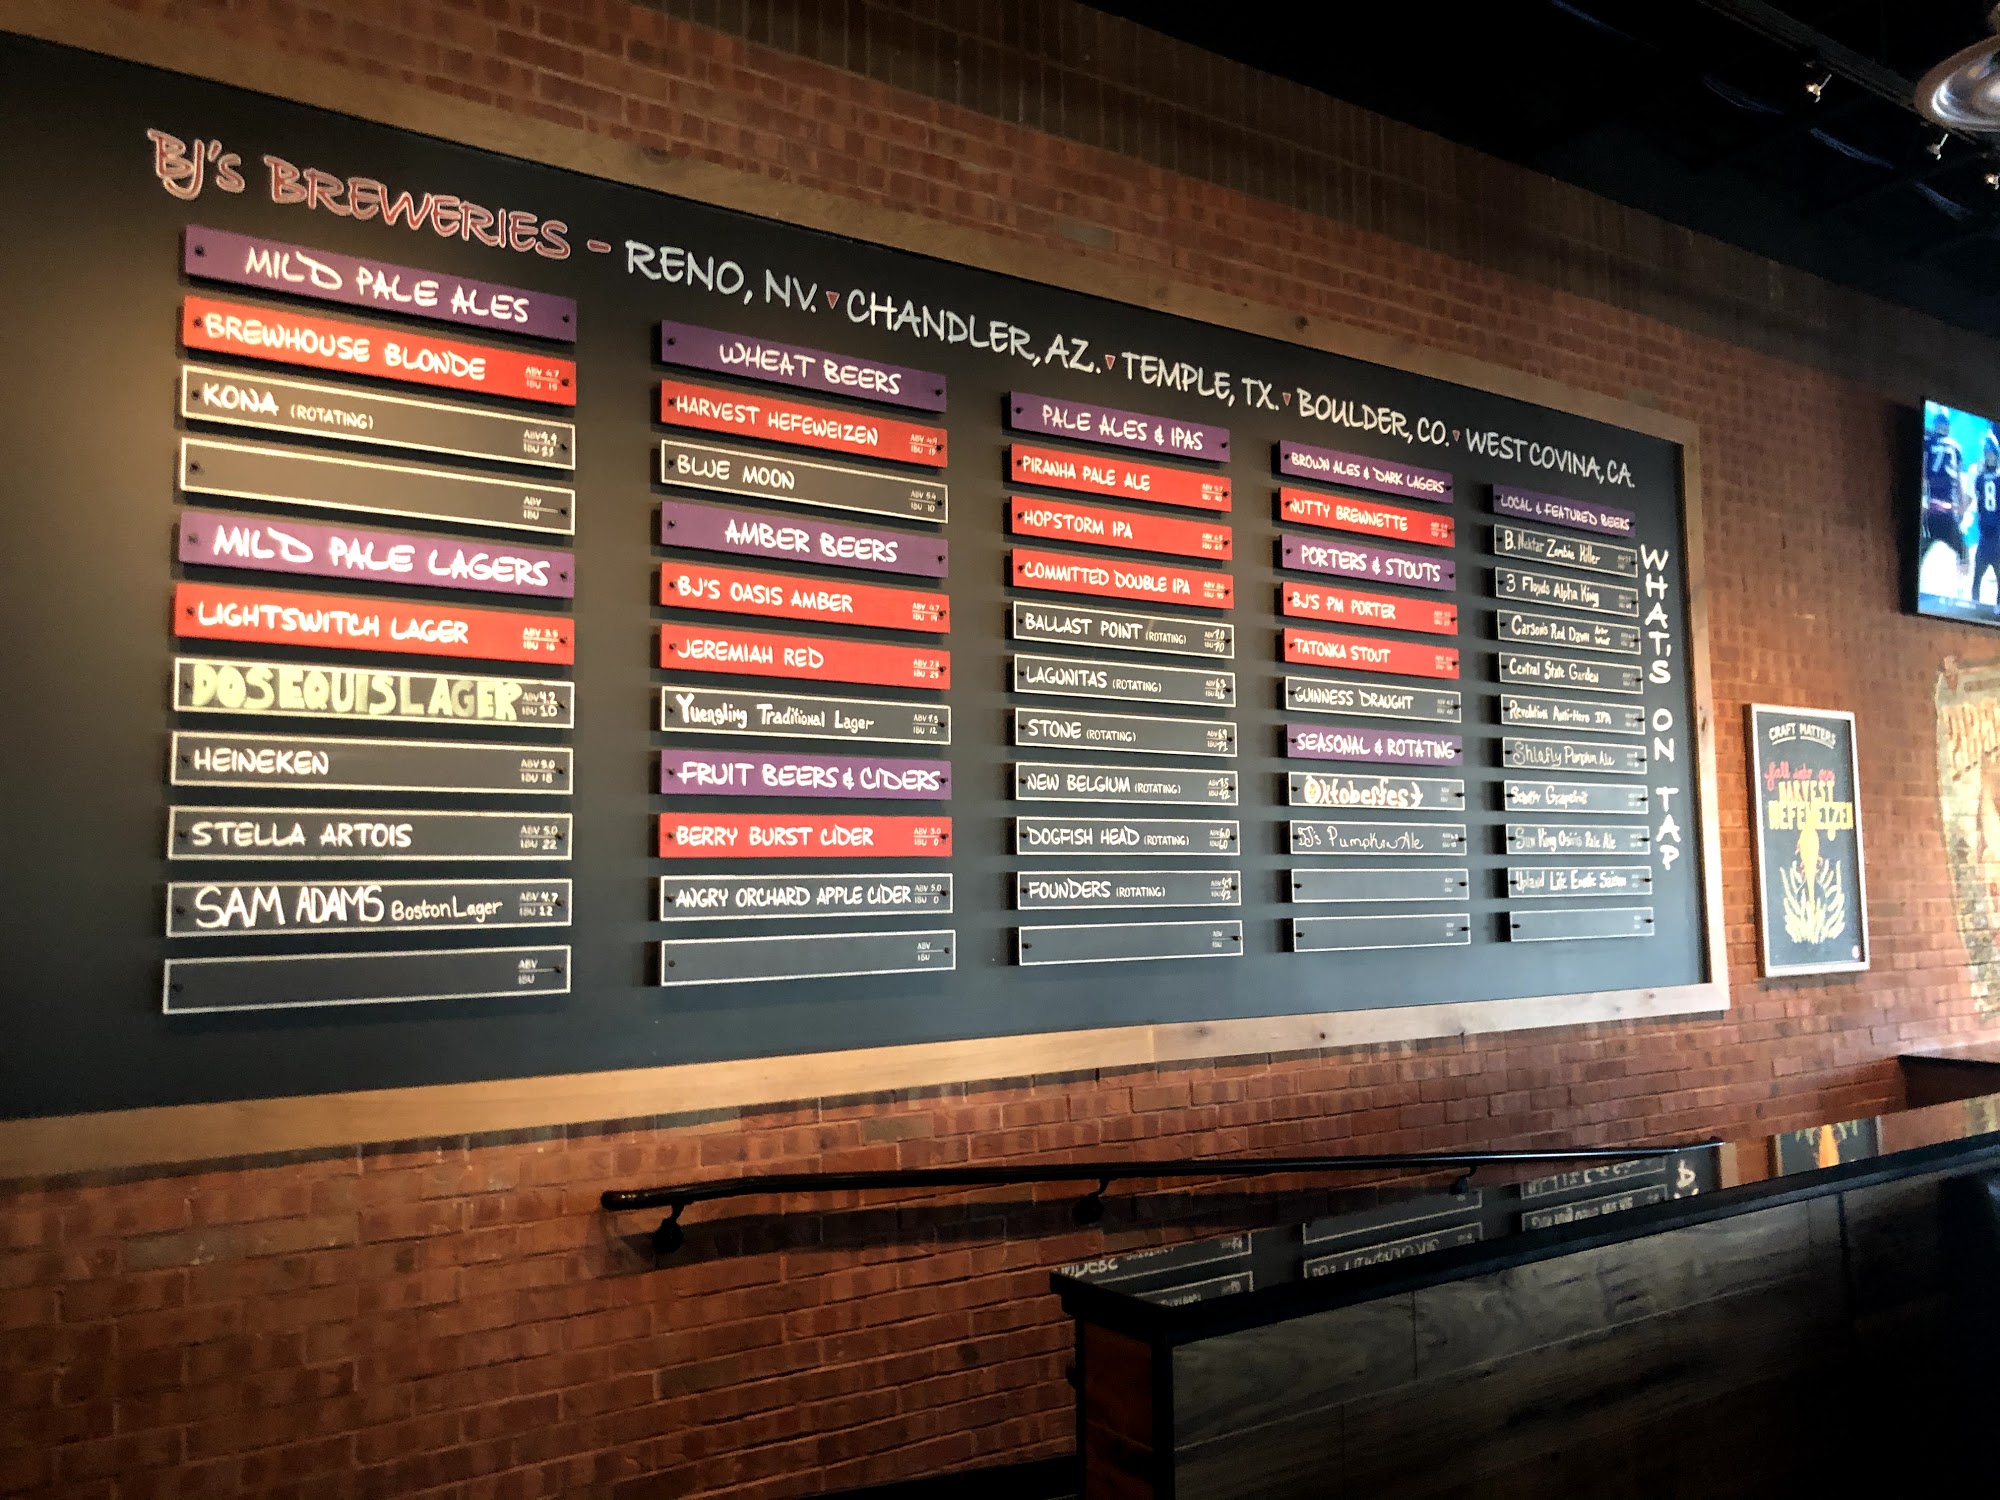 BJ'S BREWERIES - RENO, NV. CHANDLER, AZ. TEMPLE, TX. BOULDER, CO. WEST COVINA, CA.
MILD PALE ALES
BREWHOUSE BLONDE ABV 4.7 IBU 15
KONA (ROTATING) ABV 4.4 IBU
ABV IBU
MILD PALE LAGERS
LIGHTSWITCH LAGER ABV 3.5 IBU 16
DOS EQUIS LAGER ABV 4.2 IBU 10
HEINEKEN ABV 5.0 IBU 18
STELLA ARTOIS ABV 5.0 IBU 22
SAM ADAMS Boston Lager ABV 4.7 IBU 12
ABV IBU
WHEAT BEERS
HARVEST HEFEWEIZEN ABV 4.9 IBU 15
BLUE MOON ABV 5.4 IBU 10
AMBER BEERS
BJ'S OASIS AMBER ABV 4.7 IBU 19
JEREMIAH RED ABV 7.3 IBU 25
Yuengling Traditional Lager ABV 4.5 IBU 12
FRUIT BEERS & CIDERS
BERRY BURST CIDER ABV 3.0 IBU 0
ANGRY ORCHARD APPLE CIDER ABV 5.0 IBU 0
ABV IBU
PALE ALES & IPAS
PIRANHA PALE ALE ABV 5.7 IBU
HOPSTORM IPA ABV 6.5 IBU 65
COMMITTED DOUBLE IPA ABV IBU
BALLAST POINT (ROTATING) ABV 7.0 IBU 70
LAGUNITAS (ROTATING) ABV 6.2 IBU
STONE (ROTATING) ABV 6.9 IBU 71
NEW BELGIUM (ROTATING) ABV IBU
DOGFISH HEAD (ROTATING) ABV 6.0 IBU 60
FOUNDERS (ROTATING) ABV IBU 42
ABV IBU
BROWN ALES & DARK LAGERS
NUTTY BREWNETTE
PORTERS & STOUTS
BJ'S PM PORTER
TATONKA STOUT
GUINNESS DRAUGHT
SEASONAL & ROTATING
Oktoberfest
BJ's Pumpkin Ale
LOCAL & FEATURED BEERS
B. Nektar Zombie Killer
3 Floyds Alpha King
Carson's Red Dawn
Central State Garden
Revolution Anti-Hero IPA
Shlafly Pumpkin Ale
Sun King Osiris Pale Ale
Upland Life Exotic Saison
WHAT'S ON TAP
CRAFT MATTERS
fall into our
HARVEST
HEFEWEIZEN